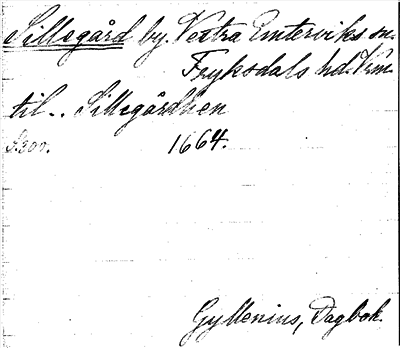 Sillegård by. Vestra Emterviks sn.
Fryksdals hd. Vrm.
til.. Sillegårdhen
S. 300. 1664.
Gyllenius, Dagbok.